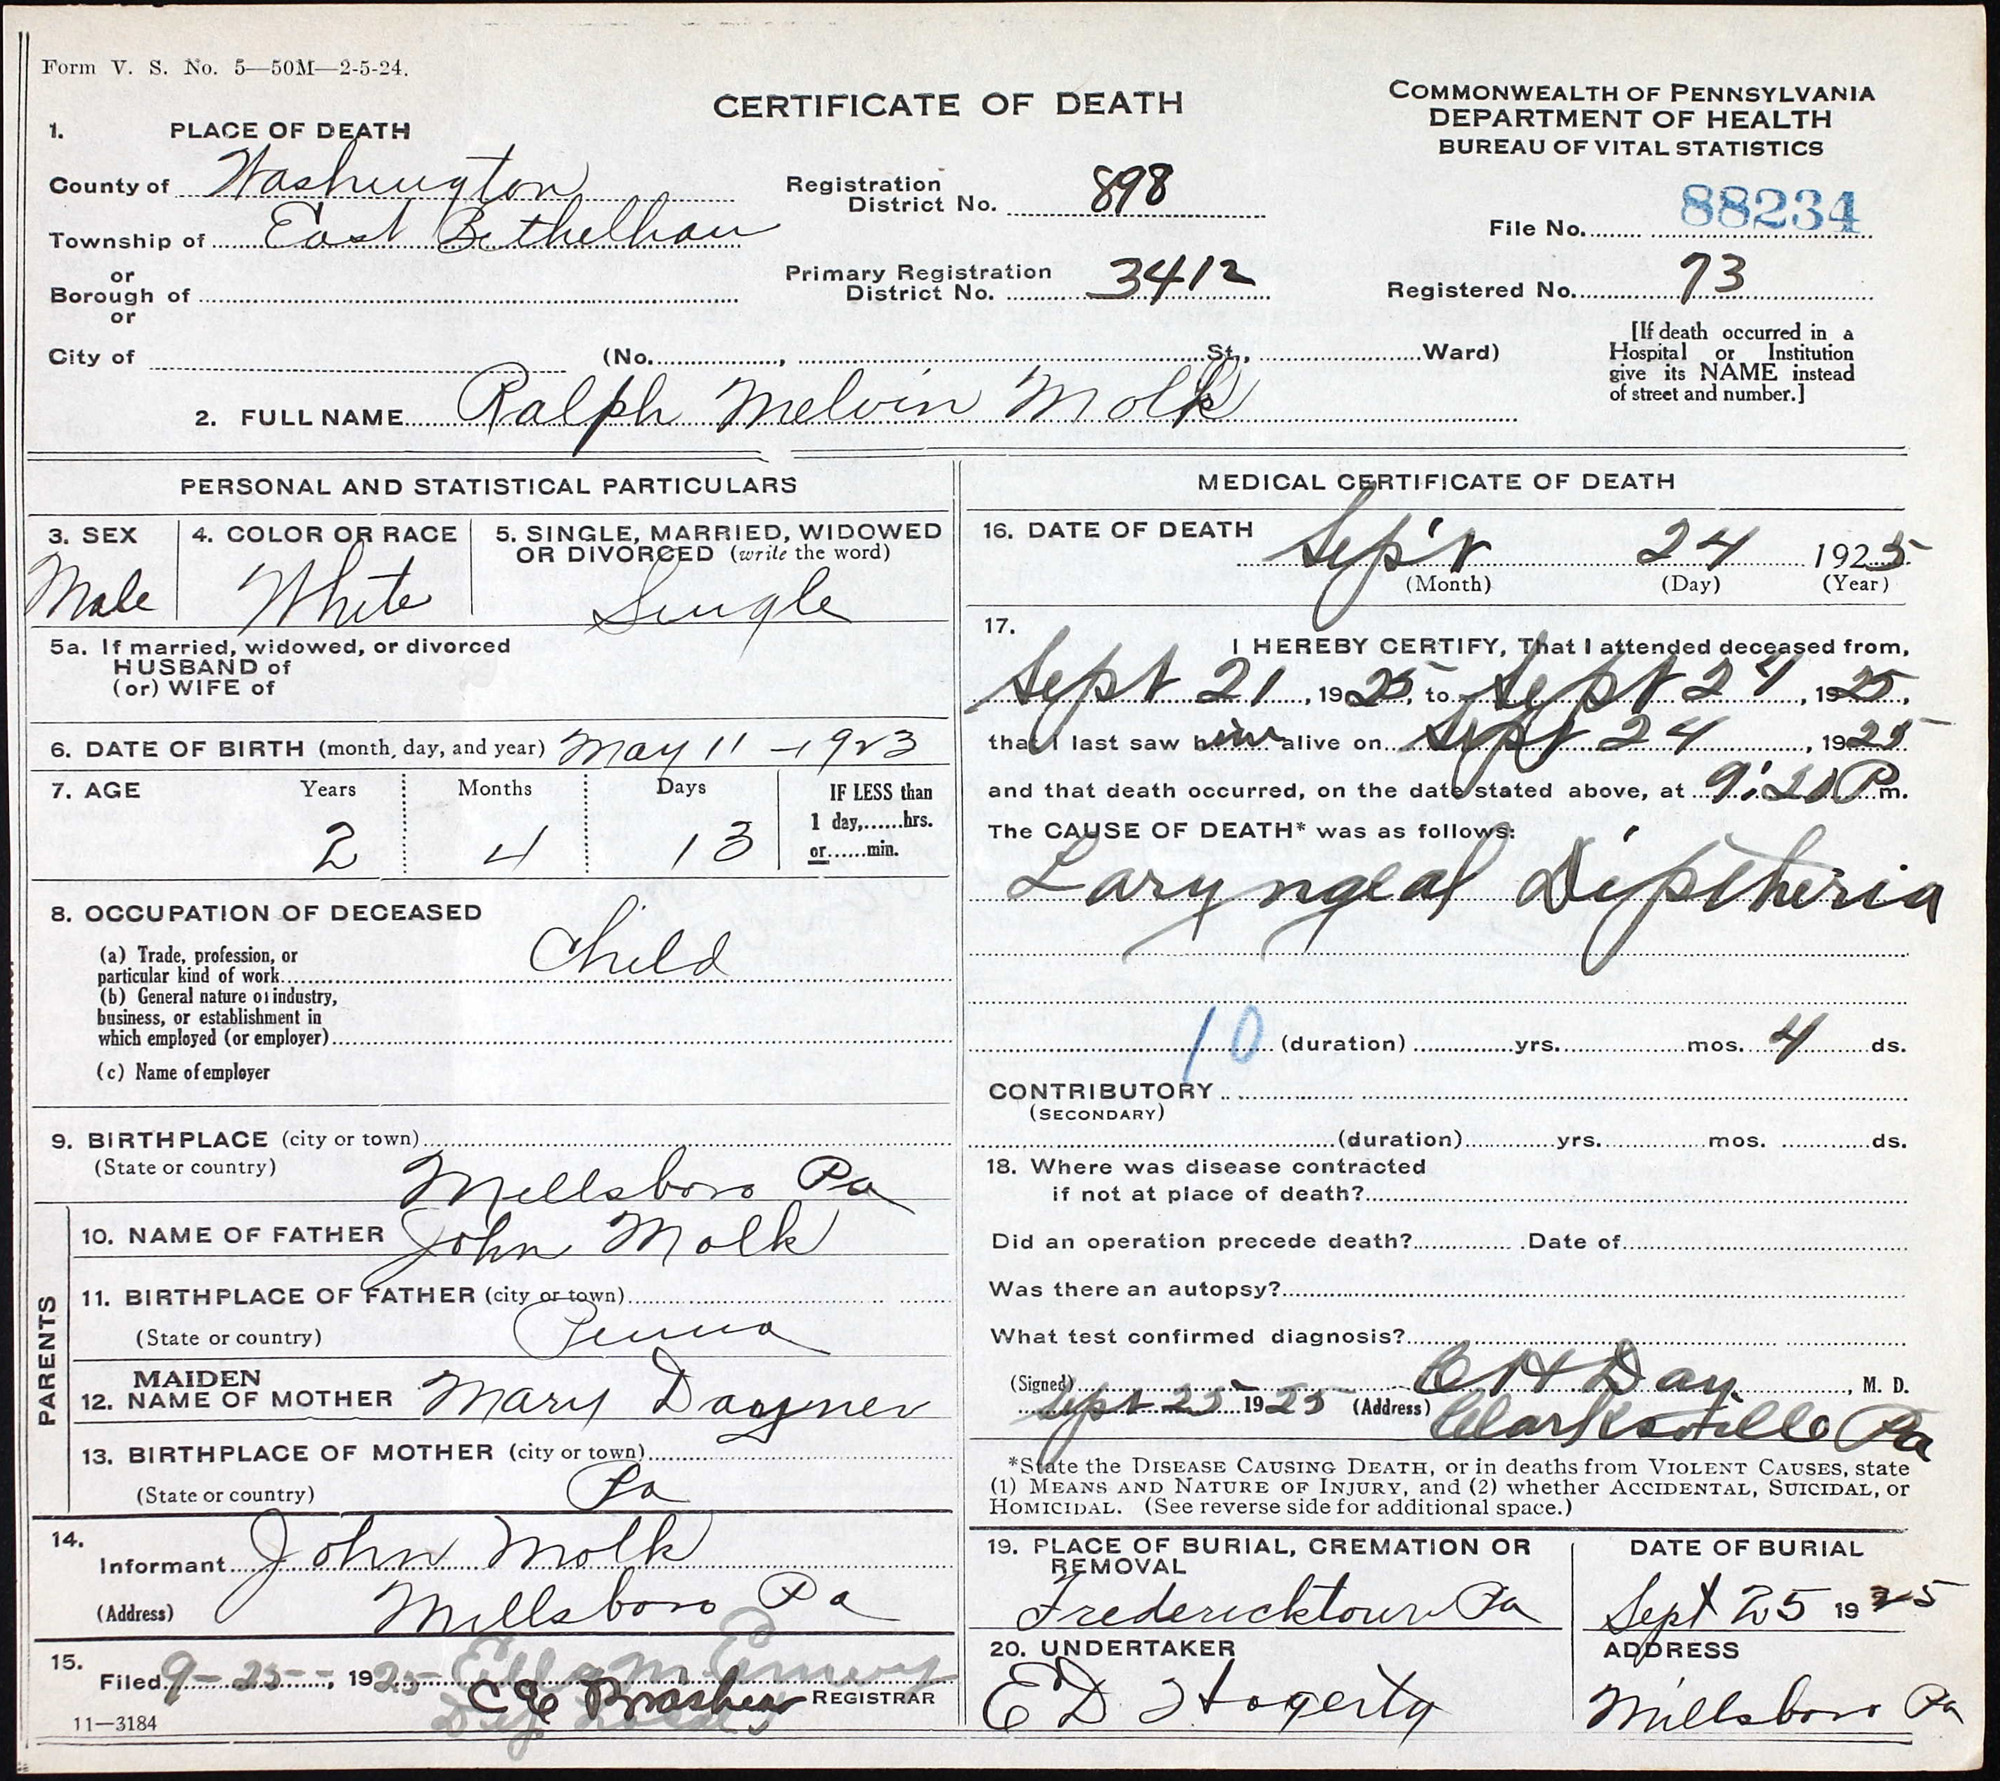 Form V. S. No. 5—50M—2-5-24.
CERTIFICATE OF DEATH
COMMONWEALTH OF PENNSYLVANIA
DEPARTMENT OF HEALTH
BUREAU OF VITAL STATISTICS
1. PLACE OF DEATH
County of Washington
Township of East Bethelham
or
Borough of
or
City of
Registration District No. 898
Primary Registration District No. 3412
File No. 88234
Registered No. 73
(No. , St., Ward)
[If death occurred in a
Hospital or Institution
give its NAME instead
of street and number.]
2. FULL NAME Ralph Melvin Molk
PERSONAL AND STATISTICAL PARTICULARS
3. SEX
Male
4. COLOR OR RACE
White
5. SINGLE, MARRIED, WIDOWED
OR DIVORCED (write the word)
Single
5a. If married, widowed, or divorced
HUSBAND of
(or) WIFE of
6. DATE OF BIRTH (month, day, and year) May 11 - 1923
7. AGE Years Months Days
2 4 13
IF LESS than
1 day, hrs.
or min.
8. OCCUPATION OF DECEASED
(a) Trade, profession, or
particular kind of work Child
(b) General nature of industry,
business, or establishment in
which employed (or employer)
(c) Name of employer
9. BIRTHPLACE (city or town)
(State or country) Millsboro Pa
PARENTS
10. NAME OF FATHER John Molk
11. BIRTHPLACE OF FATHER (city or town)
(State or country) Penna
12. MAIDEN NAME OF MOTHER Mary Daynes
13. BIRTHPLACE OF MOTHER (city or town)
(State or country) Pa
14.
Informant John Molk
(Address) Millsboro Pa
15.
Filed 9-25-, 1925 Ella M. Emery
C E Brasher REGISTRAR
11—3184
MEDICAL CERTIFICATE OF DEATH
16. DATE OF DEATH Sep't 24 1925
(Month) (Day) (Year)
17.
I HEREBY CERTIFY, That I attended deceased from,
Sept 21, 1925, to Sept 24, 1925,
that I last saw him alive on Sept 24, 1925
and that death occurred, on the date stated above, at 9:20 P m.
The CAUSE OF DEATH* was as follows:
Laryngeal Diptheria
10 (duration) yrs. mos. 4 ds.
CONTRIBUTORY
(SECONDARY)
(duration) yrs. mos. ds.
18. Where was disease contracted
if not at place of death?
Did an operation precede death? Date of
Was there an autopsy?
What test confirmed diagnosis?
(Signed) O H Day, M. D.
Sept 25 1925 (Address) Clarksville Pa
*State the DISEASE CAUSING DEATH, or in deaths from VIOLENT CAUSES, state
(1) MEANS AND NATURE OF INJURY, and (2) whether ACCIDENTAL, SUICIDAL, or
HOMICIDAL. (See reverse side for additional space.)
19. PLACE OF BURIAL, CREMATION OR
REMOVAL
Fredericktown Pa
DATE OF BURIAL
Sept 25 1925
20. UNDERTAKER
E D Hogerty
ADDRESS
Millsboro Pa